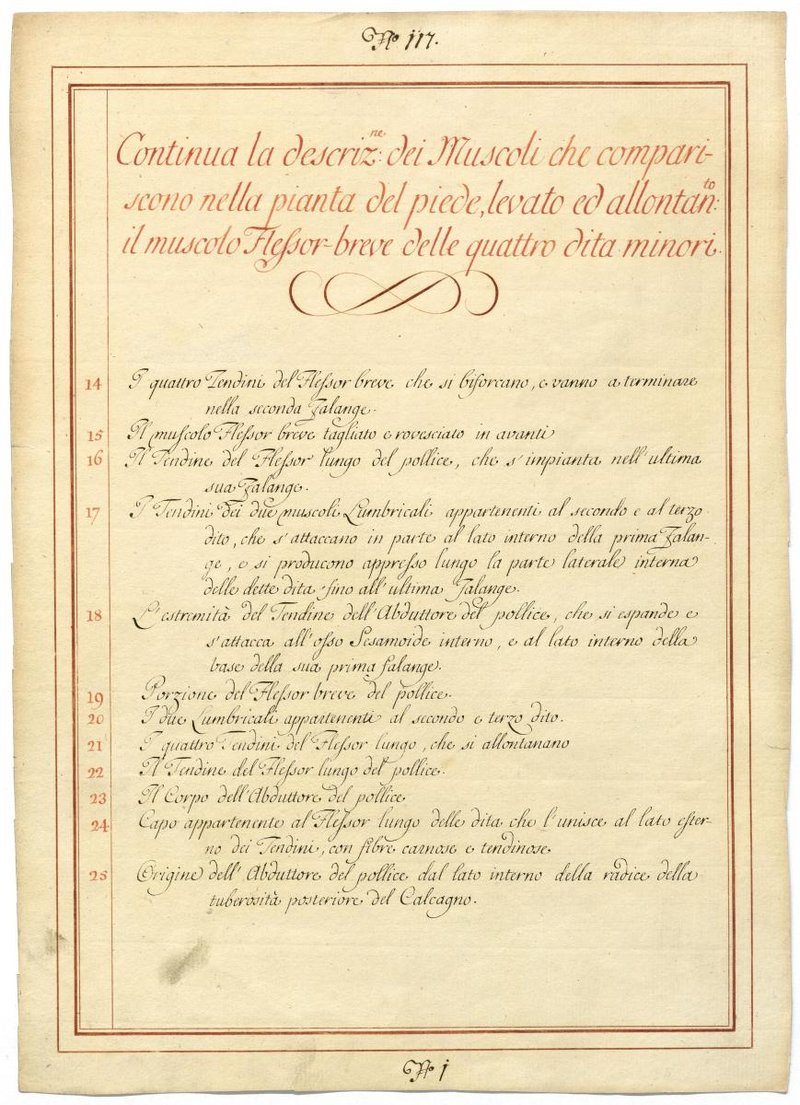 Nº 117.
Continua la descriz.ne: dei Muscoli che compari-
scono nella pianta del piede, levato ed allontan:to
il muscolo Flessor-breve delle quattro dita minori.
14 I quattro Tendini del Flessor breve che si biforcano, e vanno a terminare
nella seconda Falange.
15 Il muscolo Flessor breve tagliato e rovesciato in avanti
16 Il Tendine del Flessor lungo del pollice, che s'impianta nell'ultima
sua Falange.
17 I Tendini dei due muscoli Lumbricali appartenenti al secondo e al terzo
dito, che s'attaccano in parte al lato interno della prima Falan-
ge, e si producono appresso lungo la parte laterale interna
delle dette dita fino all'ultima Falange.
18 L'estremità del Tendine dell'Abduttore del pollice, che si espande e
s'attacca all'osso Sesamoide interno, e al lato interno della
base della sua prima falange.
19 Porzione del Flessor breve del pollice.
20 I due Lumbricali appartenenti al secondo e terzo dito.
21 I quattro Tendini del Flessor lungo, che si allontanano
22 Il Tendine del Flessor lungo del pollice.
23 Il Corpo dell'Abduttore del pollice
24 Capo appartenente al Flessor lungo delle dita che l'unisce al lato ester-
no dei Tendini, con fibre carnose e tendinose
25 Origine dell'Abduttore del pollice dal lato interno della radice della
tuberosità posteriore del Calcagno.
Nº 1